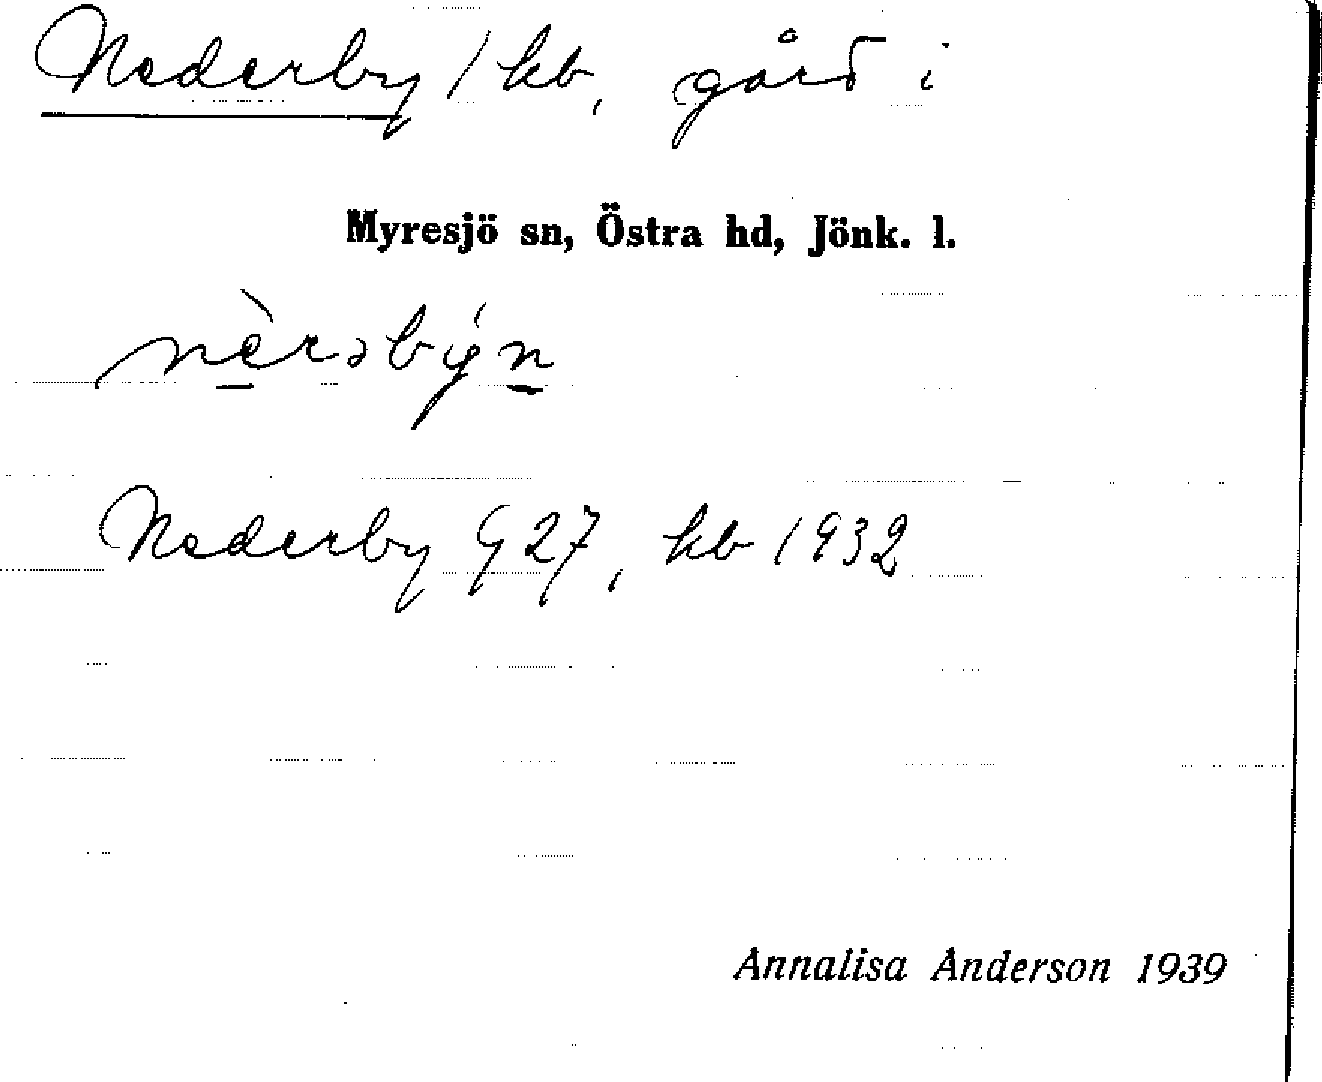 Nederby 1 kb, gård i
Myresjö sn, Östra hd, Jönk. l.
nèrəbýn
Nederby G 27, kb 1932
Annalisa Anderson 1939